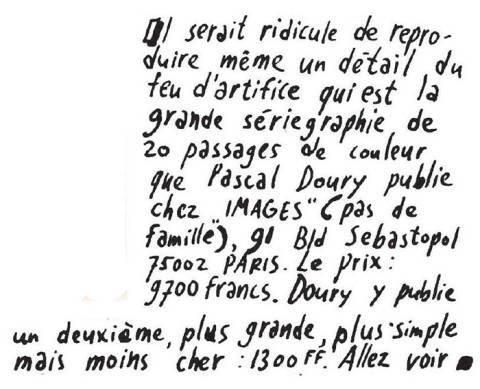 Il serait ridicule de repro-
duire même un détail du
feu d'artifice qui est la
grande sériegraphie de
20 passages de couleur
que Pascal Doury publie
chez "IMAGES" (pas de
famille), 91 Bld Sebastopol
75002 PARIS. Le prix:
9700 francs. Doury y publie
un deuxième, plus grande, plus simple
mais moins cher : 1300 FF. Allez voir.